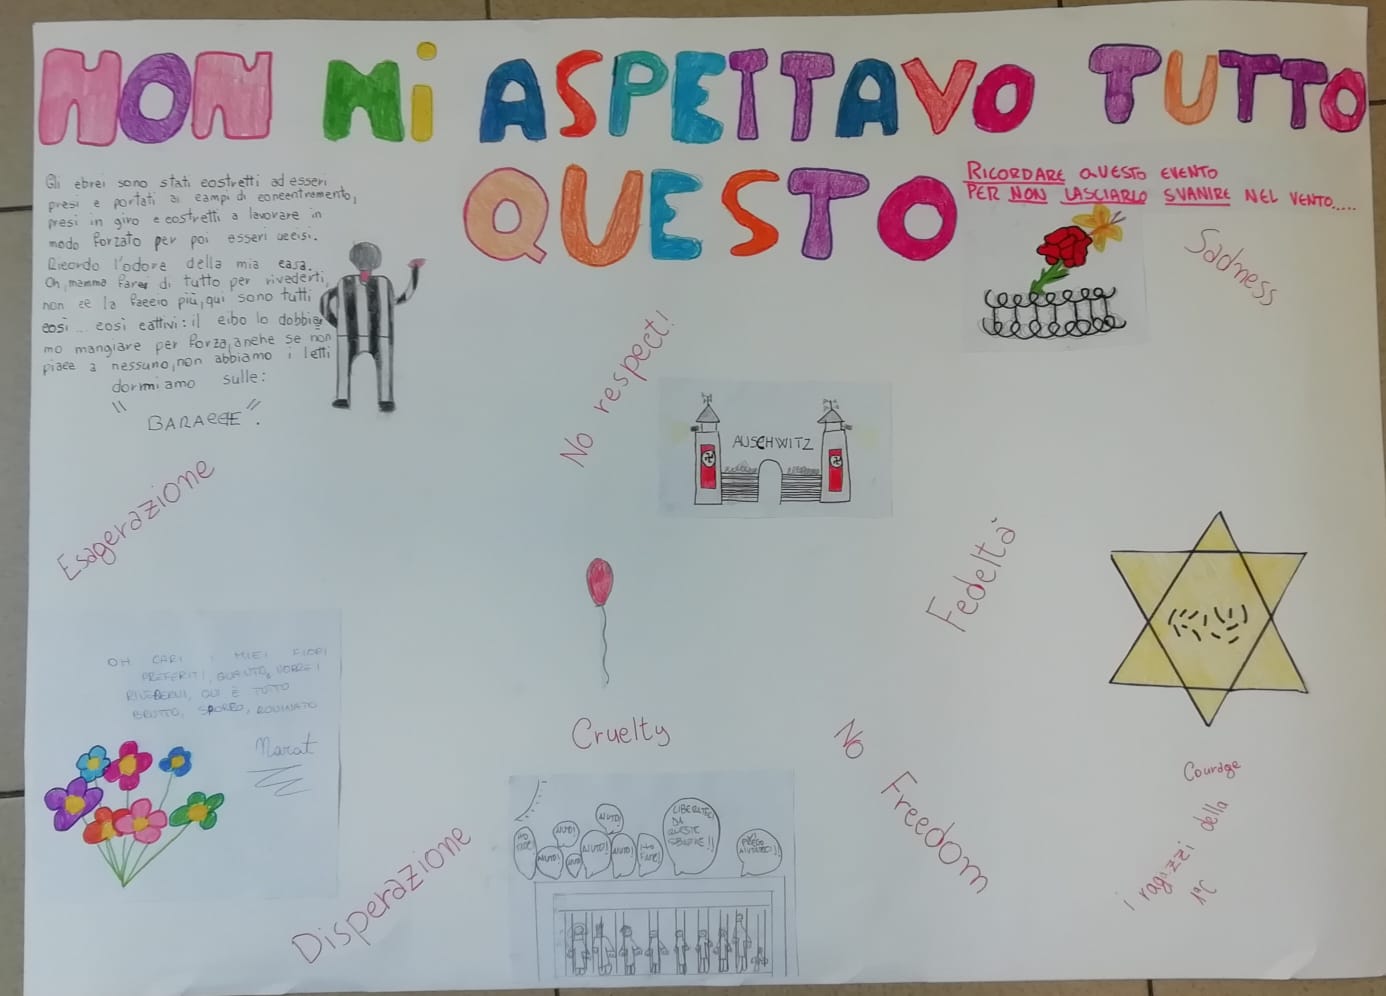 NON Mi ASPETTAVO TUTTO
QUESTO
Gli ebrei sono stati costretti ad esseri
presi e portati ai campi di concentramento,
presi in giro e costretti a lavorare in
modo forzato per poi esseri uccisi.
Ricordo l'odore della mia casa.
Oh, mamma farei di tutto per rivederti,
non ce la faccio più, qui sono tutti
così... così cattivi: il cibo lo dobbia
mo mangiare per forza, anche se non
piace a nessuno, non abbiamo i letti
dormiamo sulle:
"BARACCE".
RICORDARE QUESTO EVENTO
PER NON LASCIARLO SVANIRE NEL VENTO.....
Sadness
No respect!
AUSCHWITZ
Esagerazione
Fedeltà
OH CARI I MIEI FIORI
PREFERITI, QUANTO, VORREI
RIVEDERVI, QUI È TUTTO
BRUTTO, SPORCO, ROVINATO
Marat
Cruelty
No Freedom
Courage
i ragazzi della
1°C
Disperazione
HO
AIUTO!
AIUTO!
AIUTO!
AIUTO!
AIUTO!
HO
FAME!
LIBERATECI
DA
QUESTE
SBARRE!!
PREGO
AIUTATECI!!